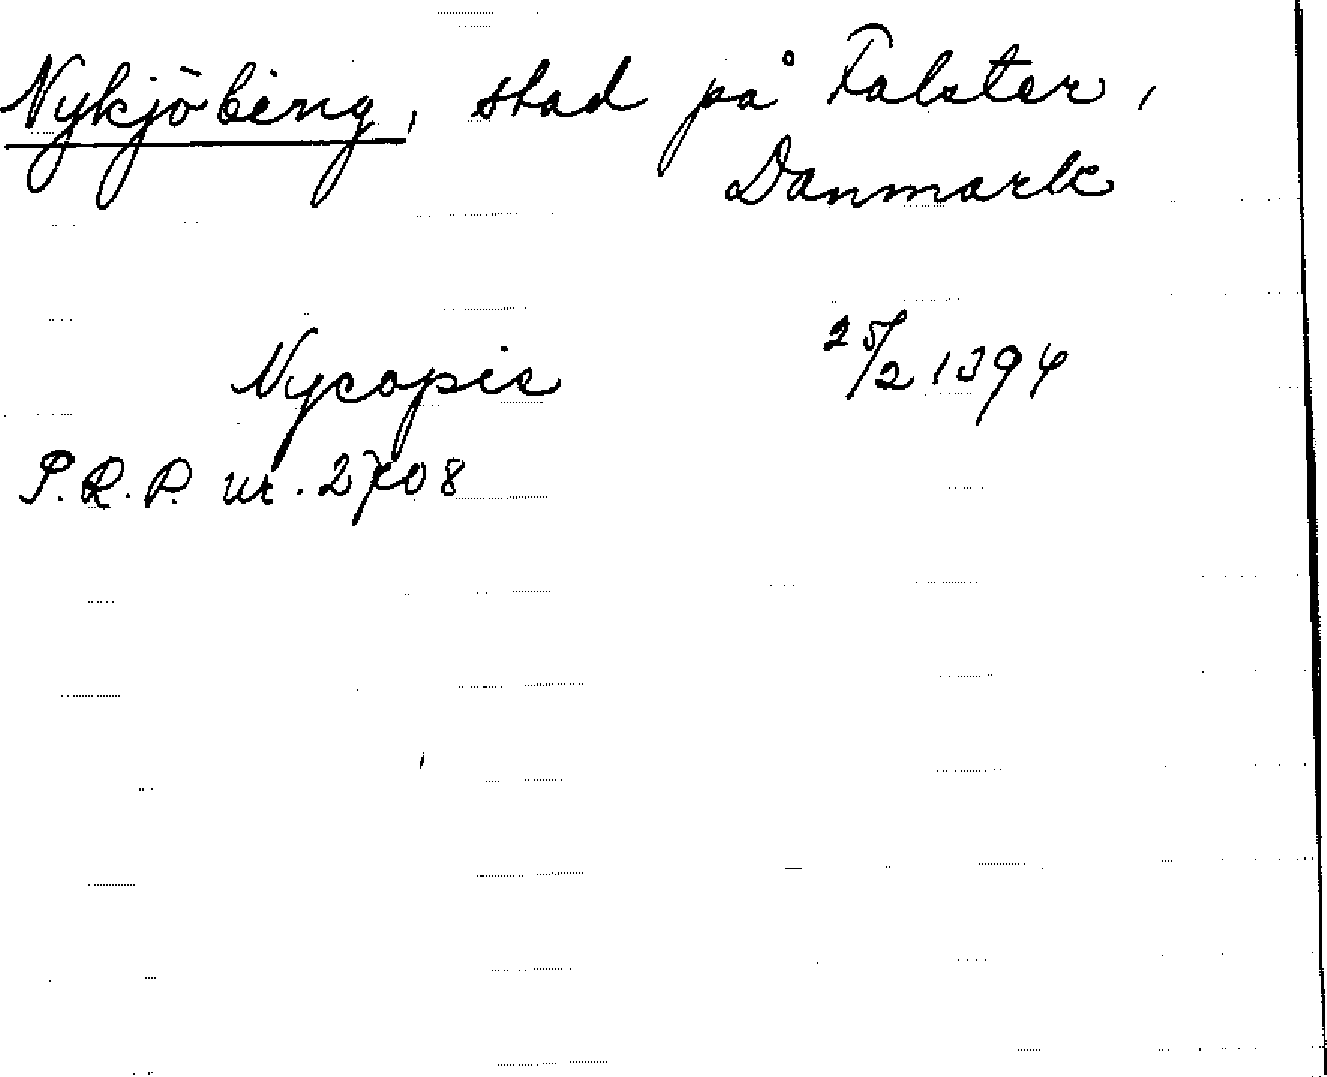 Nykjöbing, stad på Falster,
Danmark
Nycopie 25/2 1394
P.R.P. nr. 2708